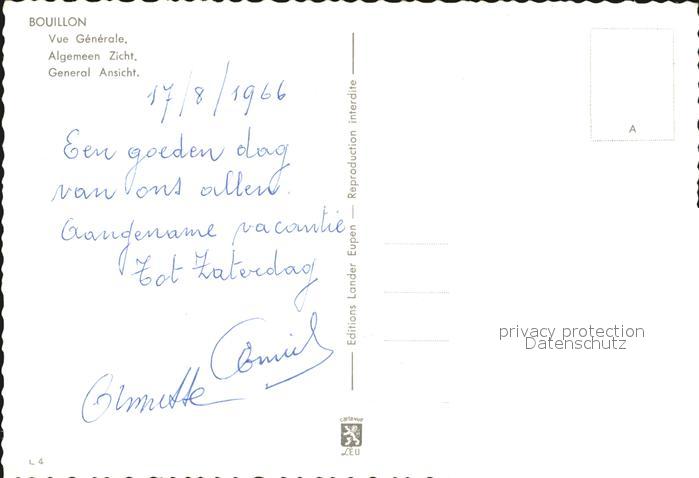 BOUILLON
Vue Générale.
Algemeen Zicht.
General Ansicht.
17/8/1966
Een goeden dag
van ons allen.
Aangename vacantie
Tot Zaterdag
Camiel
Editions Lander Eupen — Reproduction interdite
A
privacy protection
Datenschutz
cartevue
LEU
L 4